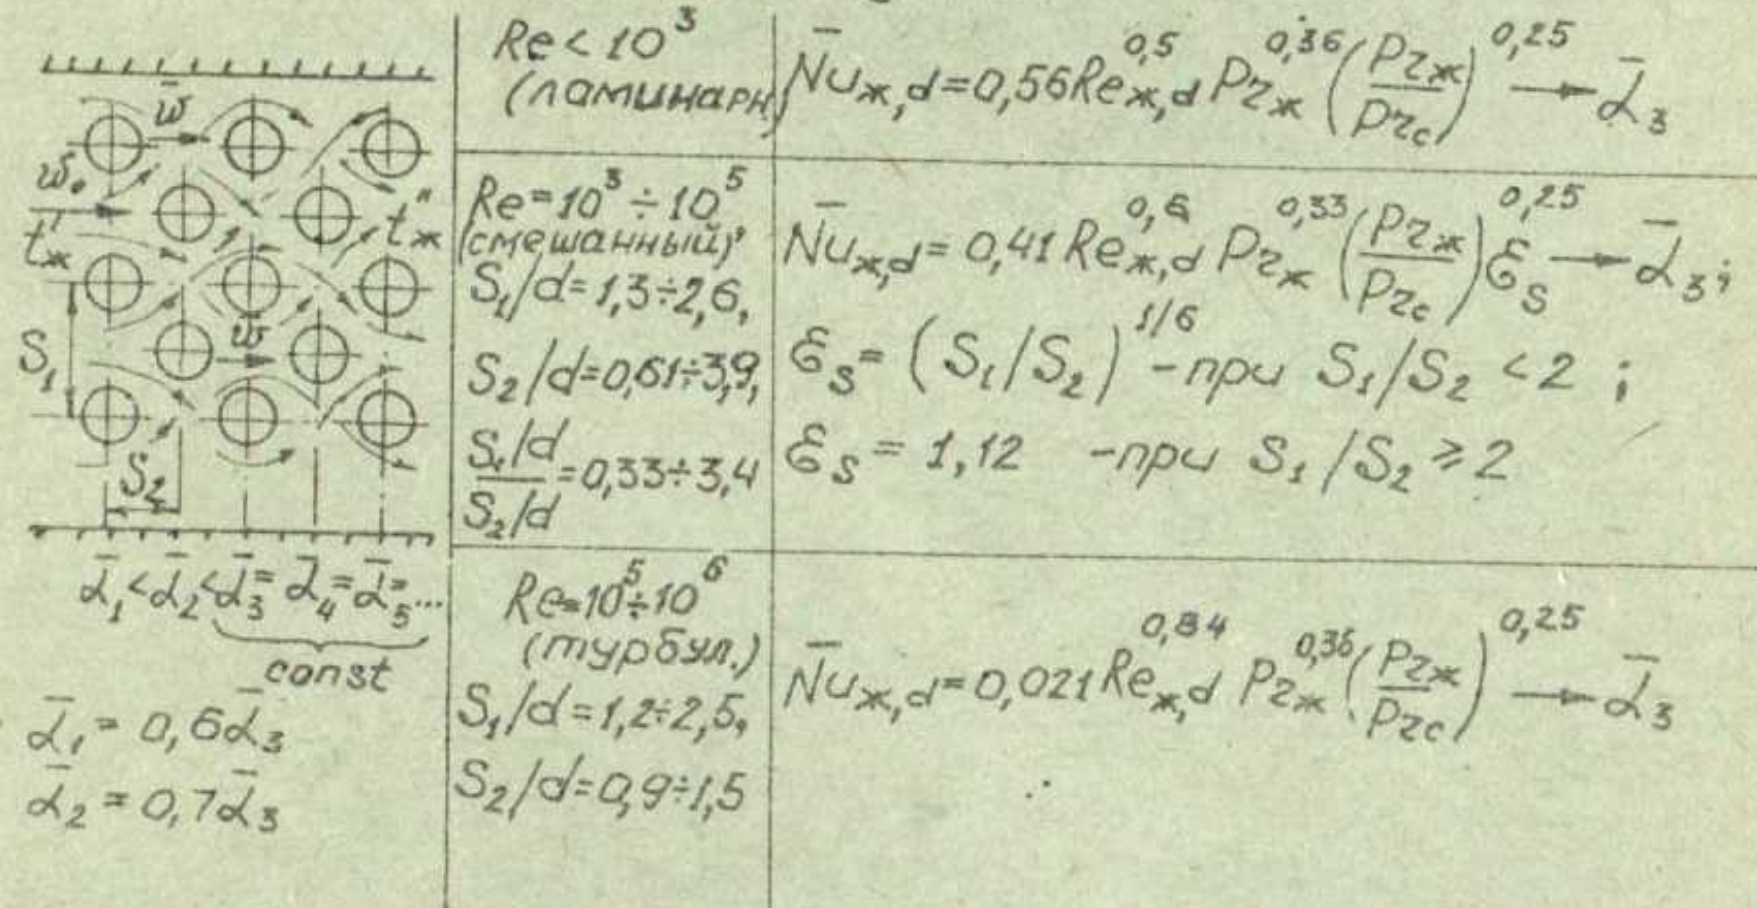 w̄
w̄₀
t'ж
t"ж
S₁
w̄
S₂
ᾱ₁<ᾱ₂<ᾱ₃=ᾱ₄=ᾱ₅=...
const
ᾱ₁=0,6ᾱ₃
ᾱ₂=0,7ᾱ₃
Re<10³
(ламинарн)
N̄uж,d=0,56Reж,d^0,5 Prж^0,36 (Prж/Prс)^0,25 → ᾱ₃
Re=10³÷10⁵
(смешанный),
S₁/d=1,3÷2,6,
S₂/d=0,61÷3,9,
(S₁/d)/(S₂/d)=0,33÷3,4
N̄uж,d=0,41Reж,d^0,6 Prж^0,33 (Prж/Prс)^0,25 Ɛs → ᾱ₃;
Ɛs=(S₁/S₂)^1/6 -при S₁/S₂<2;
Ɛs=1,12 -при S₁/S₂≥2
Re=10⁵÷10⁶
(турбул.)
S₁/d=1,2÷2,5,
S₂/d=0,9÷1,5
N̄uж,d=0,021Reж,d^0,84 Prж^0,36 (Prж/Prс)^0,25 → ᾱ₃